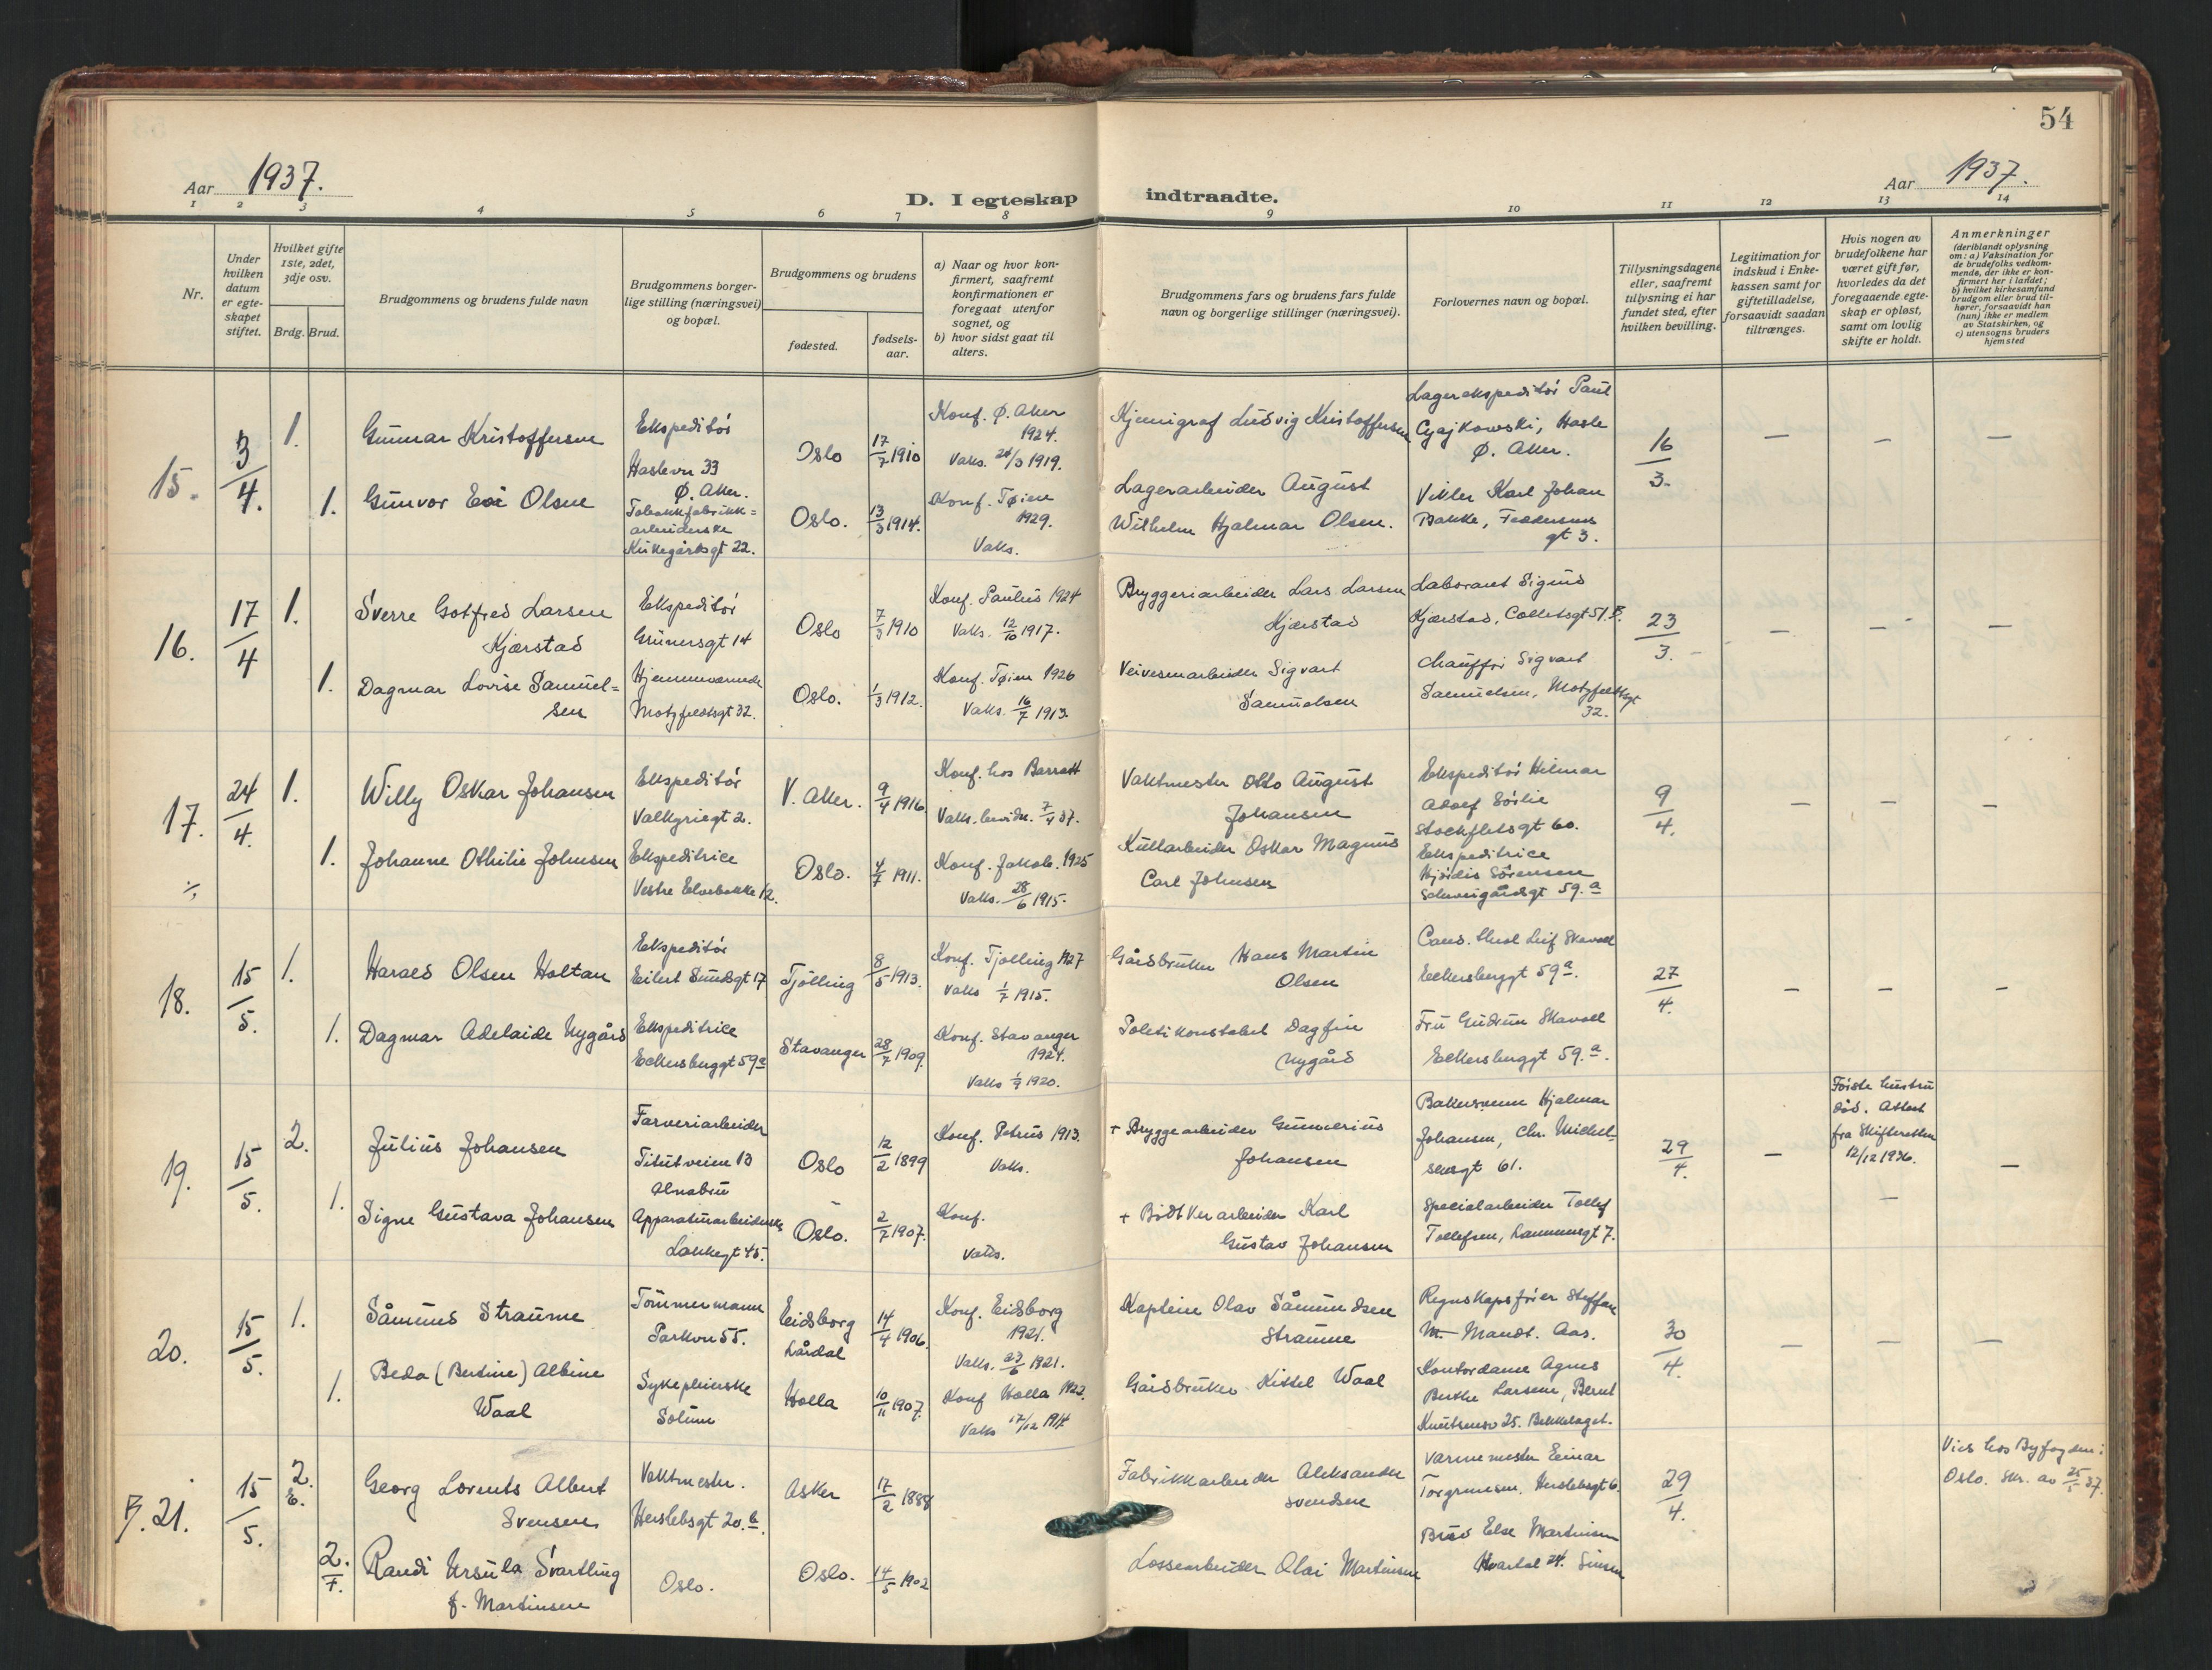 54
Aar 1937.
D. I egteskap indtraadte.
Aar 1937.
1 2 3 4 5 6 7 8 9 10 11 12 13 14
Nr.
Under hvilken datum er egteskapet stiftet.
Hvilket gifte 1ste, 2det, 3dje osv.
Brdg. Brud.
Brudgommens og brudens fulde navn
Brudgommens borgerlige stilling (næringsvei) og bopæl.
Brudgommens og brudens
fødested.
fødselsaar.
a) Naar og hvor konfirmert, saafremt konfirmationen er foregaat utenfor sognet, og
b) hvor sidst gaat til alters.
Brudgommens fars og brudens fars fulde navn og borgerlige stillinger (næringsvei).
Forlovernes navn og bopæl.
Tillysningsdagene eller, saafremt tillysning ei har fundet sted, efter hvilken bevilling.
Legitimation for indskud i Enkekassen samt for giftetilladelse, forsaavidt saadan tiltrænges.
Hvis nogen av brudefolkene har været gift før, hvorledes da det foregaaende egteskap er opløst, samt om lovlig skifte er holdt.
Anmerkninger
(deriblandt oplysning om: a) Vaksination for de brudefolks vedkommende, der ikke er konfirmert her i landet; b) hvilket kirkesamfund brudgom eller brud tilhører, forsaavidt han (hun) ikke er medlem av Statskirken, og c) utensogns bruders hjemsted
15. 3/4. 1. Gunnar Kristoffersen
Ekspeditör
Haslevn 33
Ø. Aker.
Oslo 17/7 1910
Konf. Ø. Aker
1924.
Vaks. 24/3 1919.
Kjemigraf Ludvig Kristoffersen
Lagerekspeditör Paul
Cyajkowski, Hasle
Ø. Aker.
16/3. — — —
1. Gunvor Evi Olsen
Tobakkfabrikk=
arbeiderske
Kirkegårdsgt 22.
Oslo. 13/3 1914.
Konf. Tøien
1929.
Vaks.
Lagerarbeider August
Wilhelm Hjalmar Olsen.
Vikler Karl Johan
Bakke, Feddersens
gt 3.
16. 17/4 1. Sverre Gotfred Larsen
Kjærstad
Ekspeditör
Grünersgt 14
Oslo 7/3 1910
Konf. Paulus 1924
Vaks. 12/10 1917.
Bryggeriarbeider Lars Larsen
Kjærstad
Laborant Sigurd
Kjærstad, Colletsgt 51 B.
23/3. — — —
1. Dagmar Lovise Samuel=
sen
Hjemmeværende
Motzfeldtsgt 32.
Oslo. 1/3 1912.
Konf. Tøien 1926
Vaks. 16/7 1913.
Veivesenarbeider Sigvart
Samuelsen
Chauffør Sigvart
Samuelsen, Motzfeldtsgt
32.
17. 24/4. 1. Willy Oskar Johansen
Ekspeditör
Valkyriegt 2.
V. Aker. 9/4 1916
Konf. hos Barratt
Vaks. bevidn. 7/4 37.
Vaktmester Otto August
Johansen
Ekspeditör Hilmar
Adolf Sörlie
Stockfletsgt 60.
9/4. — — —
1. Johanne Othilie Johnsen
Ekspeditrice
Vestre Elvebakke 12.
Oslo. 4/7 1911.
Konf. Jakob. 1925
Vaks. 28/6 1915.
Kullarbeider Oskar Magnus
Carl Johnsen
Ekspeditrice
Hjördis Sörensen
Schweigårdsgt 59.a
18. 15/5. 1. Harald Olsen Holtan
Ekspeditör
Eilert Sundsgt 17
Tjölling 8/5 1913.
Konf. Tjölling 1927
Vaks 1/7 1915.
Gårdbruker Hans Martin
Olsen
Cand. theol Leif Skavoll
Eckersberggt 59a.
27/4. — — —
1. Dagmar Adelaide Nygård
Ekspeditrice
Eckersberggt 59a
Stavanger 28/7 1909.
Konf. Stavanger
1924.
Vaks 1/9 1920.
Politikonstabel Dagfin
Nygård
Fru Gudrun Skavoll
Eckersberggt 59.a.
19. 15/5. 2. Julius Johansen
Farveriarbeider
Titutveien 13
Alnabru
Oslo 12/2 1899
Konf. Petrus 1913.
Vaks.
+ Bryggearbeider Gunnerius
Johansen
Bakersvenn Hjalmar
Johansen, Chr. Michel-
sensgt 61.
29/4. —
Förste hustru
död. Attest
fra Skifteretten
12/12 1936.
—
1. Signe Gustava Johansen
Apparaturarbeiderske
Lakkegt 45.
Oslo. 2/7 1907.
Konf.
Vaks.
+ Bödtkerarbeider Karl
Gustav Johansen
Specialarbeider Tollef
Tollefsen, Lammersgt 7.
—
20. 15/5. 1. Såmund Straume
Tömmermann
Parkvn 55.
Eidsborg
Lårdal
14/4 1906.
Konf. Eidsborg
1921.
Vaks. 23/6 1921.
Kaptein Olav Såmundsen
Straume
Regnskapsfører Steffan
M. Mandt. Aas.
30/4. — — —
1. Beda (Bertine) Albine
Waal
Sykepleierske
Solum
Holla 10/11 1907.
Konf Holla 1922.
Vaks 17/12 1914
Gårdbruker Kittel Waal
Kontordame Agnes
Berthe Larsen, Bernt
Knutsensv 25. Bekkelaget.
B. 21. 15/5. 2. E. Georg Lorents Albert
Svensen
Vaktmester.
Herslebsgt 20.b.
Asker 17/2 1888
Fabrikkarbeider Aleksander
Svendsen
Varmemester Einar
Torgrimsen. Herslebsgt 6.
29/4.
Vied hos Byfogden i
Oslo. Skr. av 25/5 37.
2. F. Randi Ursula Svartling
f. Martinsen
Oslo.
Oslo. 14/5 1902
Lossearbeider Olai Martinsen
Else Martinsen
Kvartal 24. Sinsen